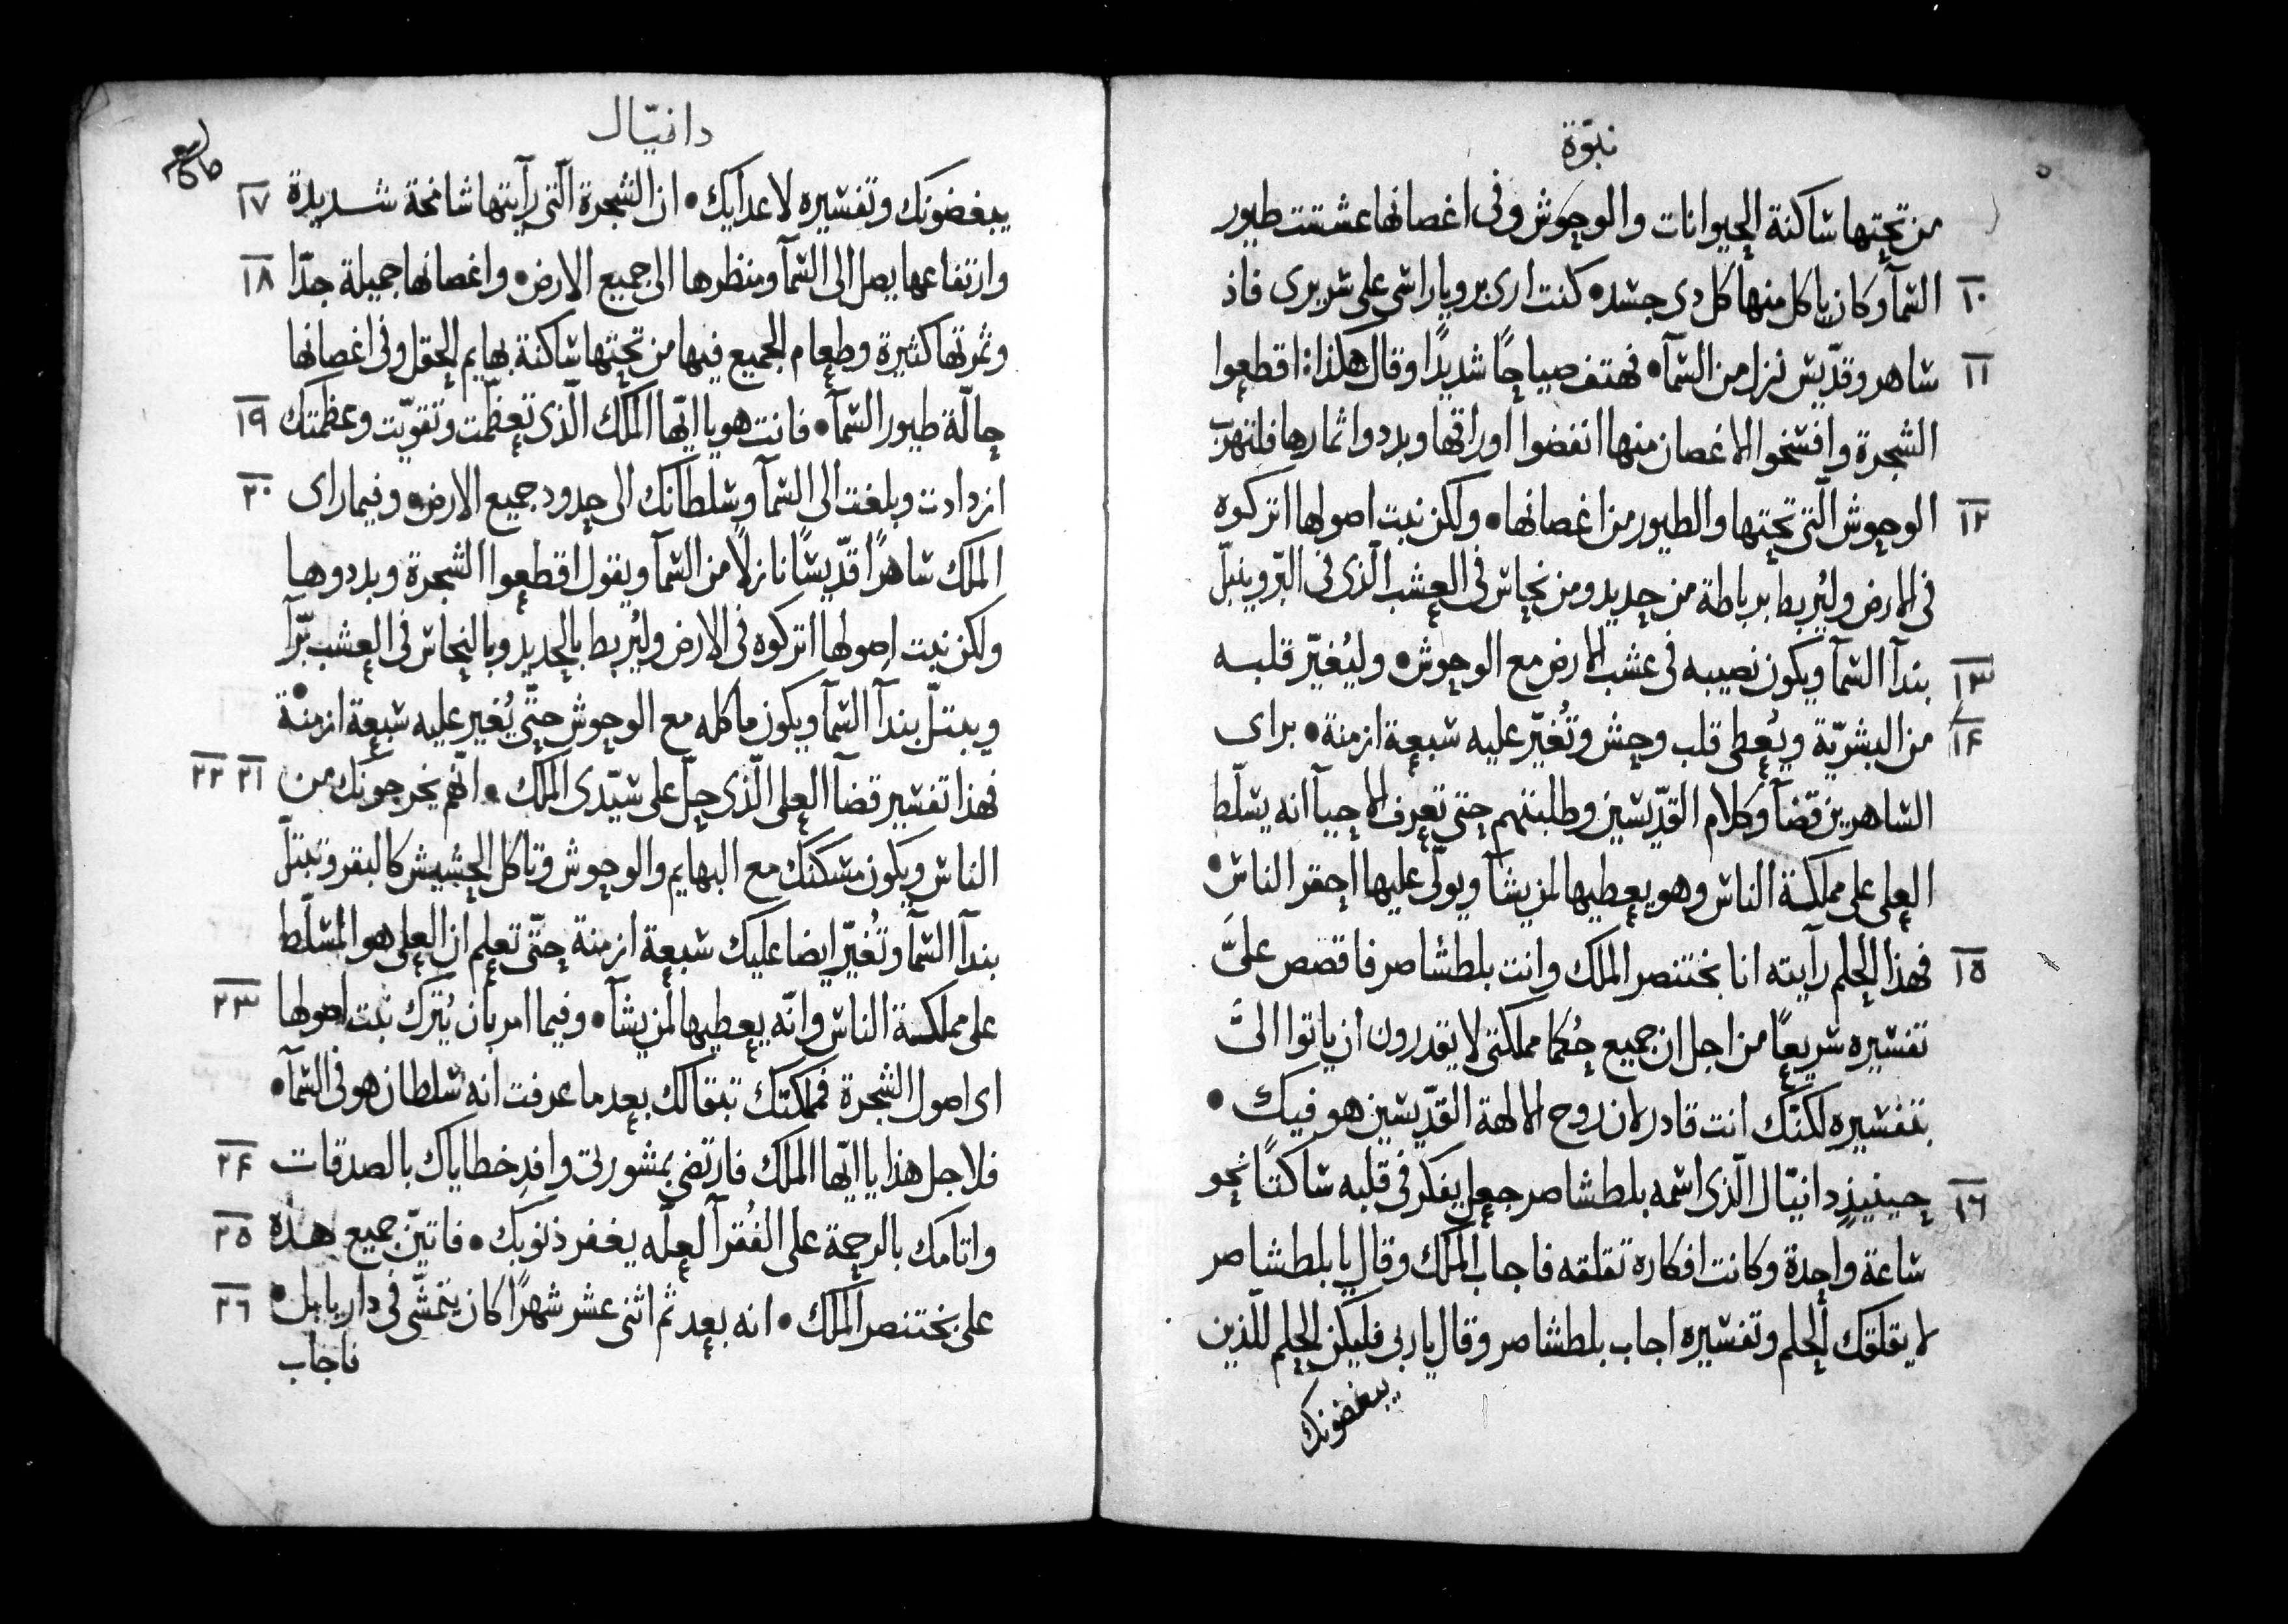 نبوّة
من تحتها ساكنة الحيوانات والوحوش وفى اغصانها عششت طيور
١٠ السمآ وكان ياكل منها كل دى جسد • كنت ارى برويا راسى على سريرى فاذ
١١ ساهر وقدّيس نزل من السمآ • فهتف صياحًا شديدًا وقال هكذا: اقطعوا
الشجرة وافسخوا الاغصان منها انفضوا اوراقها وبددوا ثمارها فلتهرب
١٢ الوحوش الّتى تحتها والطيور من اغصانها • ولكن نبت اصولها اتركوه
فى الارض وليُربط برباطة من حديد ومن نحاس فى العشب الّذى فى البّر ويبتلّ
١٣ بندآ السمآ ويكون نصيبه فى عشب الارض مع الوحوش • وليُغيّر قلبه
١٤ من البشريّة ويُعطى قلب وحش وتُغيّر عليه سبعة ازمنة • براى
الساهرين قضآ وكلام القدّيسين وطلبتهم حتى تعرف الاحيآ انه يسلّط
العلى على مملكة الناس وهو يعطيها لمن يشآ ويولّى عليها احقر الناس •
١٥ فهذا الحلم رآيته انا بختنصر الملك وانت بلطشاصر فاقصص علىَّ
تفسيره سريعًا من اجل ان جميع حُكما مملكتى لا يقدرون ان ياتوا الىَّ
بتفسيره لكنّك انت قادر لان روح الالهة القدّيسين هو فيك •
١٦ حينيذٍ دانيّال الّذى اسمه بلطشاصر جعل يفكر فى قلبه ساكتًا نحو
ساعة واحدة وكانت افكاره تقلقه فاجاب الملك وقال يا بلطشاصر
لا يقلقك الحلم وتفسيره اجاب بلطشاصر وقال يا ربى فليكن الحلم للّذين
يبغضونك
دانيّال
١٧ يبغضونك وتفسيره لاعدايك • ان الشجرة الّتى رآيتها شامخة شديدة
١٨ وارتفاعها يصل الى السمآ ومنظرها الى جميع الارض • واغصانها جميلة جدّا
وثمرتها كثيرة وطعام الجميع فيها من تحتها ساكنة بهايم الحقل وفى اغصانها
١٩ حالّة طيور السمآ • فانت هو يا ايّها الملك الّذى تعظّمت وتقوّيت وعظمتك
٢٠ ازدادت وبلغت الى السمآ وسلطانك الى حدود جميع الارض • وفيما راى
الملك ساهرًا قدّيسًا نازلًا من السمآ ويقول اقطعوا الشجرة وبددوها
ولكن نبت اصولها اتركوه فى الارض وليُربط بالحديد وبالنحاس فى العشب برّآ
ويبتلّ بندآ السمآ ويكون ماكله مع الوحوش حتّى يُغير عليه سبعة ازمنة •
٢١ ٢٢ فهذا تفسير قضآ العلى الّذى حلّ على سيّدى الملك • انّهم يخرجونك من
الناس ويكون مسكنك مع البهايم والوحوش وتاكل الحشيش كالبقر وتبتلّ
بندآ السمآ وتُغيّر ايضا عليك سبعة ازمنة حتّى تعلم ان العلى هو المُسلّط
٢٣ على مملكة الناس وانّه يعطيها لمن يشآ • وفيما امر بان يُترك نبت اصولها
اى اصول الشجرة فمملكتك تبقا لك بعد ما عرفت انه سلطان هو فى السمآ •
٢٤ فلاجل هذا يا ايّها الملك فارتضى بمشورتى وافدِ خطاياك بالصدقات
٢٥ واتامك بالرحمة على الفُقرآ لعلّه يغفر ذنوبك • فاتيّن جميع هذه
٢٦ على بختنصر الملك • انه بعد ثم اثنى عشر شهرًا كان يتمشّى فى دار بابل •
فاجاب